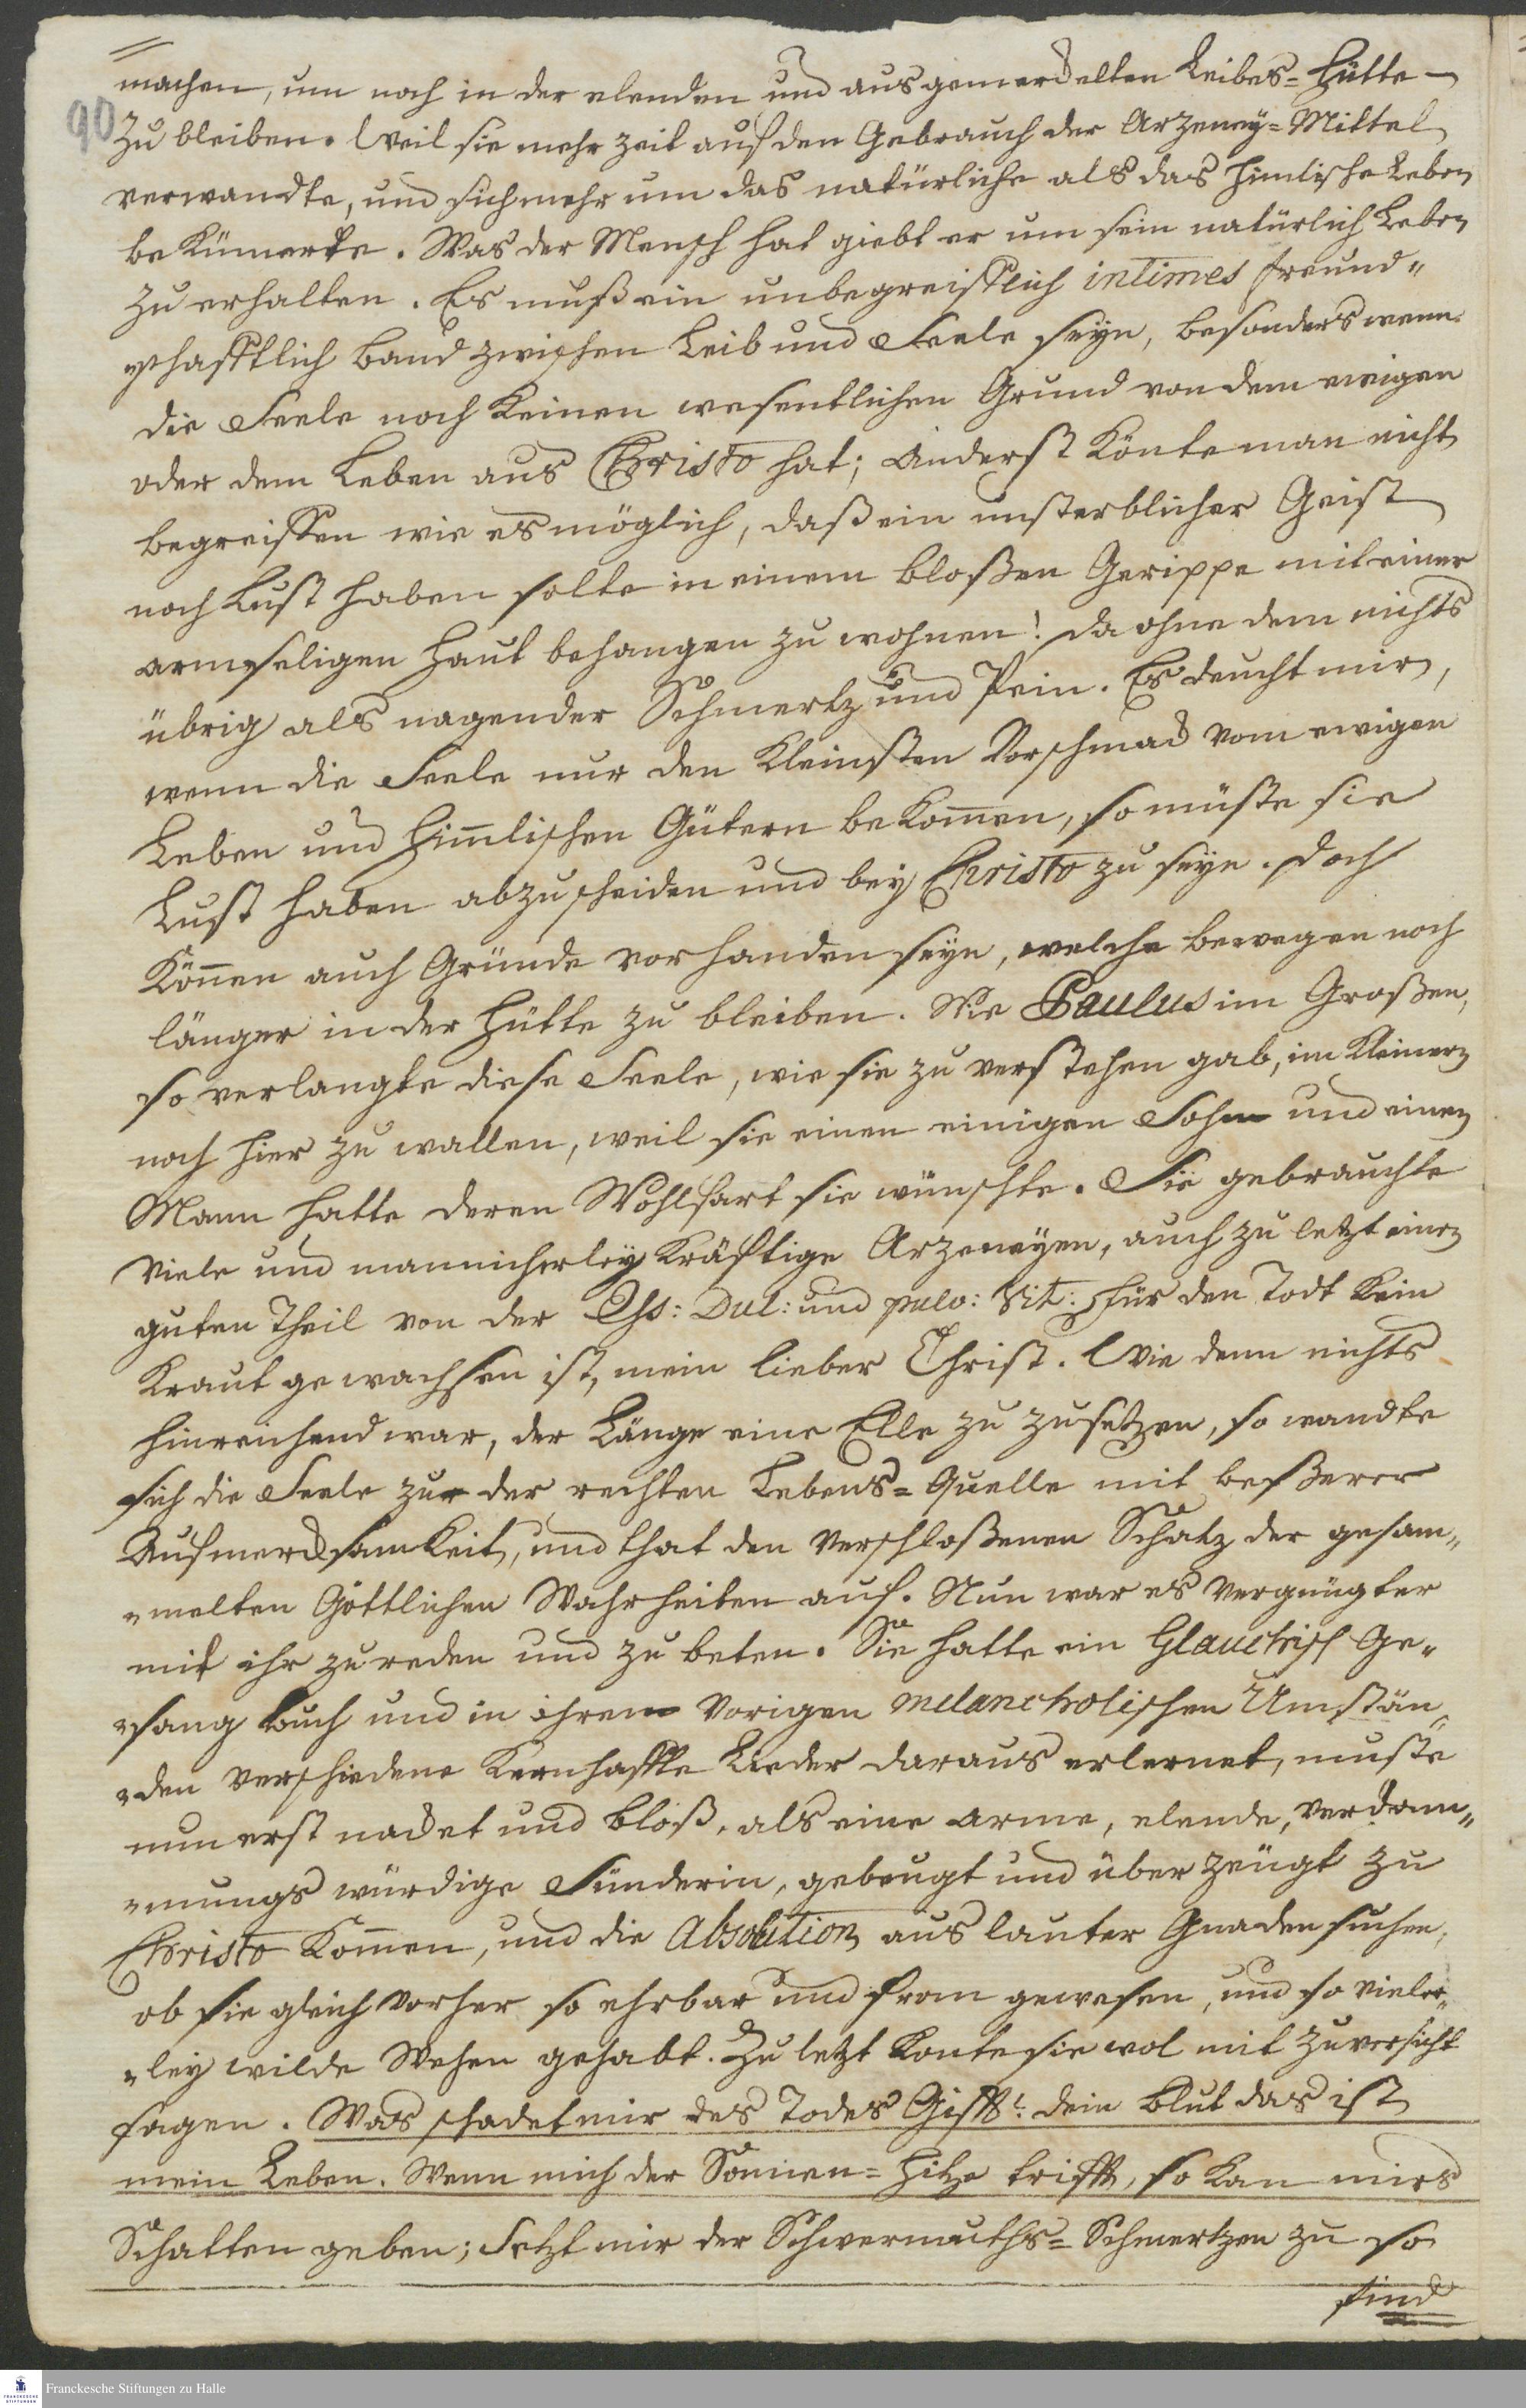 machen, um noch in der elenden und ausgemerckelten Leibes-Hütte
90
zu bleiben. Weil sie mehr Zeit auf den Gebrauch der Arzeney-Mittel
verwandte, und sich mehr um das natürliche als das himlische Leben
bekümerte. Was der Mensch hat giebt er um sein natürlich Leben
zu erhalten. Es muß ein unbegreifflich intimes freund-
schafftlich Band zwischen Leib und Seele seyn, besonders wenn
die Seele noch keinen wesentlichen Grund von dem ewigen
oder dem Leben aus Christo hat; anderst könte man nicht
begreiffen wie es möglich, daß ein unsterblicher Geist
noch Lust haben solte in einem bloßen Gerippe mit einer
armseligen Haut behangen zu wohnen! da ohne dem nichts
übrig als nagender Schmertz und Pein. Es deucht mir,
wenn die Seele nur den kleinsten Vorschmack vom ewigen
Leben und him̄lischen Gütern bekom̄en, so müste sie
Lust haben abzuscheiden und bey Christo zu seyn. Doch
kön̄en auch Gründe vorhanden seyn, welche bewegen noch
länger in der Hütte zu bleiben. Wie Paulus im Großen,
so verlangte diese Seele, wie sie zu verstehen gab, im kleinern
noch hier zu wallen, weil sie einen einigen Sohn und einen
Mann hatte deren Wohlfart sie wünschte. Sie gebrauchte
viele und mannicherley kräftige Arzeneyen, auch zu letzt einen
guten Theil von der Ess: Dul: und pulv: Vit: für den Todt kein
Kraut gewachsen ist, mein lieber Christ. Wie denn nichts
hinreichend war, der Länge eine Elle zu zusetzen, so wandte
sich die Seele zur der rechten Lebens-Quelle mit beßerer
Aufmercksamkeit, und that den verschloßenen Schatz der gesam-
-melten Göttlichen Wahrheiten auf. Nun war es vergnügter
mit ihr zu reden und zu beten. Sie hatte ein Glauchisch Ge-
-sang buch und in ihren vorigen melancholischen Umstän-
-den verschiedene Kernhaffte Lieder daraus erlernet, muste
nun erst nacket und bloß, als eine arme, elende, verdam-
-mungs würdige Sünderin, gebeugt und überzeugt zu
Christo kom̄en, und die Absolution aus lauter Gnaden suchen,
ob sie gleich vorher so ehrbar und from gewesen, und so vieler-
-ley wilde Wehen gehabt. Zu letzt konte sie wol mit Zuversicht
sagen. Was schadet mir des Todes Gifft? dein Blut das ist
mein Leben. Wenn mich der Sonnen-Hitze trifft, so kan mirs
Schatten geben; Setzt mir der Schwermuths-Schmertzen zu so
find
Franckesche Stiftungen zu Halle